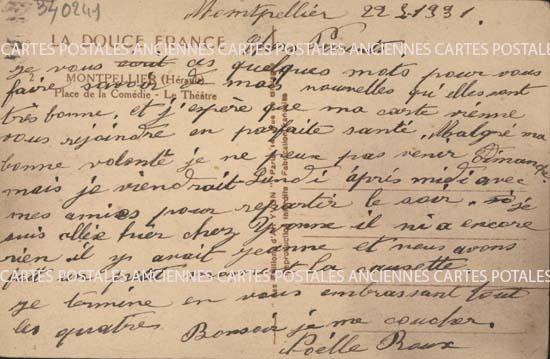 340241
Montpellier 22.3.1931.
LA DOUCE FRANCE
CARTES POSTALES ANCIENNES CARTES POSTALES ANCIENNES CARTES POSTALES
je vous ecrit ces quelques mots pour vous
2 MONTPELLIER (Hérault)
faire savoir de mes nouvelles qu'elles sont
Place de la Comédie - Le Théâtre
très bonne, et j'espère que ma carte vienne
vous rejoindre en parfaite santé, Malgré ma
bonne volonté je ne peux pas venir Dimanche
mais je viendrait Lundi après midi avec
mes amies pour repartir le soir, je
suis allée hier chez Yvonne il ni a encore
rien il y avait Jeanne et nous avons
la causette.
CARTES POSTALES ANCIENNES CARTES POSTALES ANCIENNES CARTES POSTALES
je termine en vous embrassant tout
les quatres. Bonsoir je me coucher.
Noëlle Roux